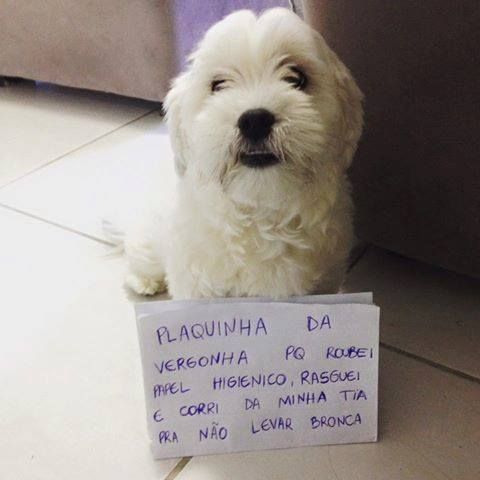 PLAQUINHA DA
VERGONHA PQ ROUBEI
PAPEL HIGIENICO, RASGUEI
E CORRI DA MINHA TIA
PRA NÃO LEVAR BRONCA